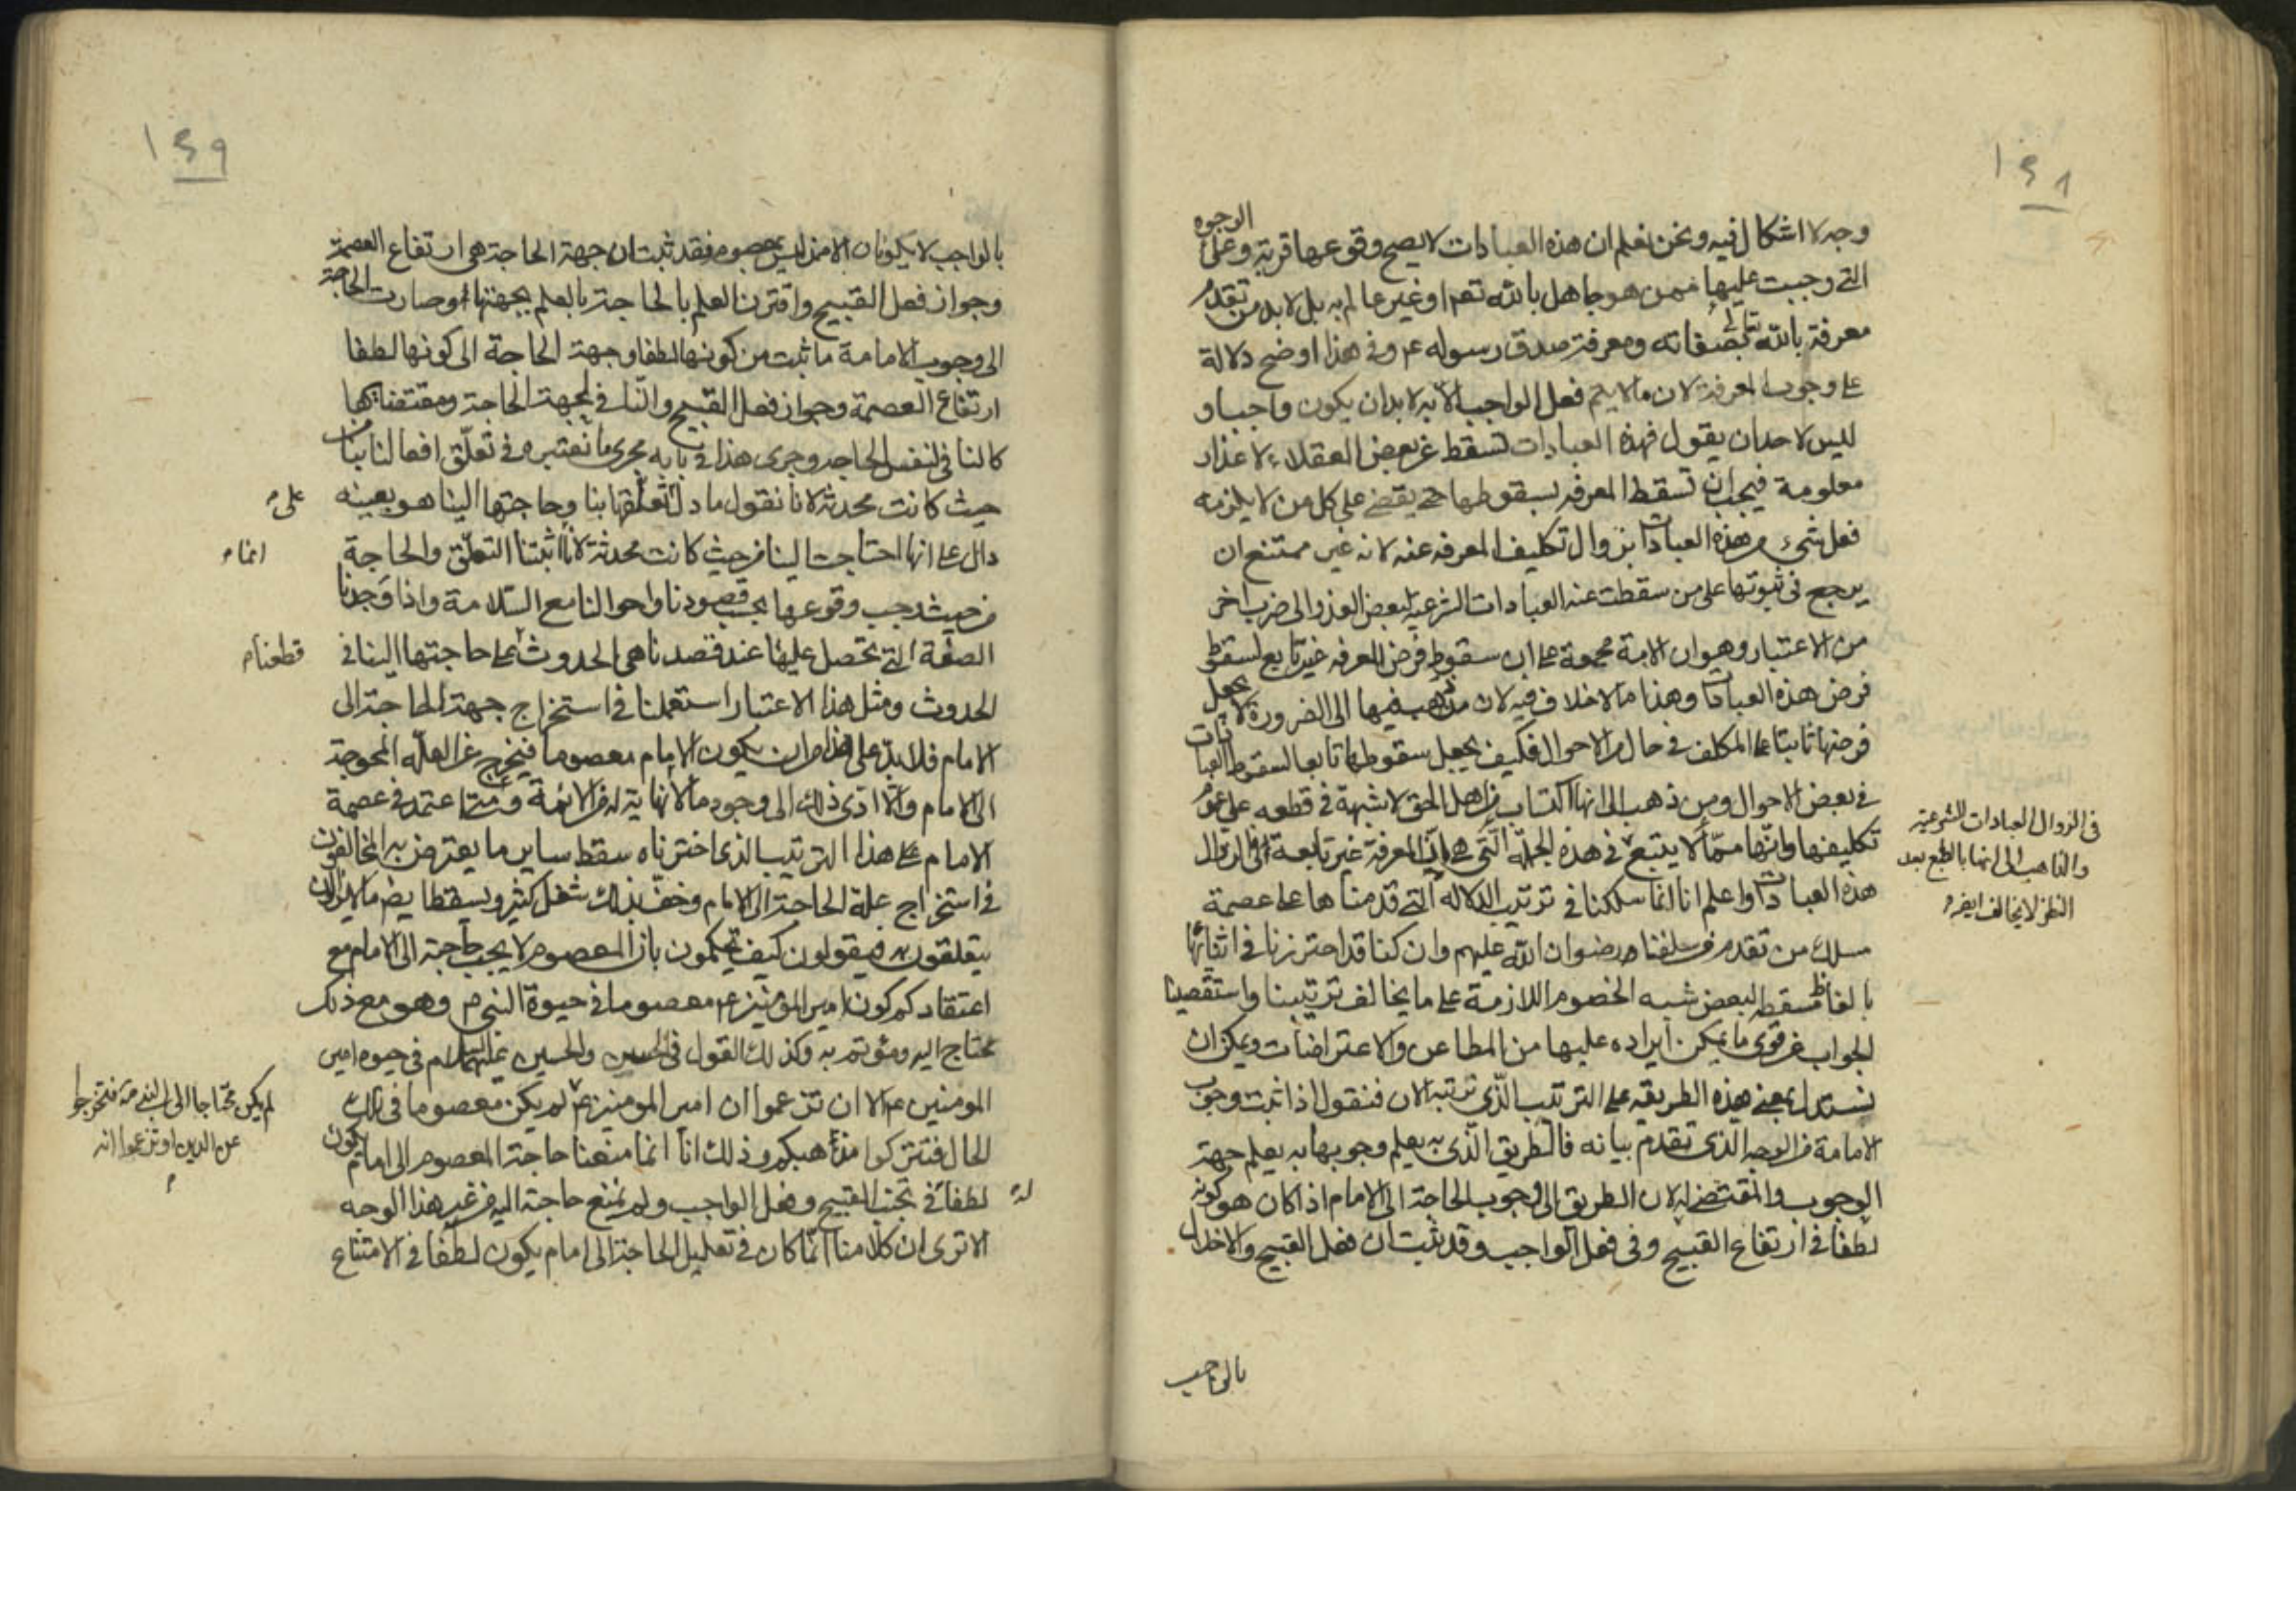 ١٤٨
وجه لا اشكال فيه ونحن نعلم ان هذه العبادات لا يصح وقوعها قربة وعلى الوجوه
التي وجبت عليها ممن هو جاهل بالله تعم او غير عالم به بل لا بد من تقدم
معرفة بالله تعالى بصفاته ومعرفة صدق رسوله عم وفي هذا اوضح دلالة
على وجوب المعرفة لان ما لا يتم فعل الواجب الا به لا بد ان يكون واجبا و
ليس لاحد ان يقول فهذه العبادات تسقط عن بعض العقلاء لاعذار
معلومة فيجب ان تسقط المعرفه بسقوطها حتى يقضي على كل من لا يلزمه
فعل شيء من هذه العبادات بزوال تكليف المعرفه عنه لانه غير ممتنع ان
يرجع في ثبوتها على من سقطت عنه العبادات الشرعية لبعض العذر الى ضرب اخر
من الاعتبار وهو ان الامة مجمعة على ان سقوط فرض المعرفه غير تابع لسقوط
فرض هذه العبادات وهذا مالا خلاف فيه لان من ذهب فيها الى الضرورة لا يجعل
فرضها ثابتا على المكلف في حال من الاحوال فكيف يجعل سقوطها تابعا لسقوط العبادات
في بعض الاحوال ومن ذهب الى انها اكتساب من اهل الحق لا شبهة في قطعه على عموم
تكليفها وانها مما لا يتبع في هذه الجملة التي هي ان المعرفة غير تابعة في الزوال
هذه العبادات واعلم انا انما سلكنا في ترتيب الدلاله التي قدمناها على عصمة
مسلك من تقدم من سلفنا رضوان الله عليهم وان كنا قد احترزنا في اثنائها
بالفاظ تسقط لبعض شبه الخصوم اللازمة على ما يخالف ترتيبنا واستقصينا
الجواب عن قوى ما يمكن ايراده عليها من المطاعن والاعتراضات ويمكن ان
نستدل بمعنى هذه الطريقه على الترتيب الذي نرتبه الان فنقول اذا ثبت وجوب
الامامة من الوجه الذي تقدم بيانه فالطريق الذي به يعلم وجوبها به يعلم جهة
الوجوب والمقتضى له لان الطريق الى وجوب الحاجة الى الامام اذا كان هو كونه
لطفا في ارتفاع القبيح وفي فعل الواجب وقد ثبت ان فعل القبيح والاخلال
بالواجب
في الزوال العبادات الشرعية
والذاهب الى انها بالطبع بعد
النظر لا يخالف ايضا
١٤٩
بالواجب لا يكونان الا ممن ليس بمعصوم فقد ثبت ان جهة الحاجة هي ارتفاع العصمة
وجواز فعل القبيح واقترن العلم بالحاجة بالعلم بجهتها وصارت الحاجة
الى وجوب الامامة ما ثبت من كونها لطفا وجهة الحاجة الى كونها لطفا
ارتفاع العصمة وجواز فعل القبيح والنافي لجهة الحاجة ومقتضاها
كالنافي لنفس الحاجة وجرى هذا في بابه مجرى ما نعتبره في تعلق افعالنا بنا من
حيث كانت محدثة لانا نقول ما دل تعلقها بنا وحاجتها الينا هو بعينه
دال على انها احتاجت الينا من حيث كانت محدثة لانا اثبتنا التعلق والحاجة
من حيث وجب وقوعها بحسب قصودنا واحوالنا مع السلامة واذا وجدنا
الصفة التي تحصل عليها عند قصدنا هي الحدوث على حاجتها الينا في
الحدوث ومثل هذا الاعتبار استعملنا في استخراج جهة الحاجة الى
الامام فلا بد على هذا من ان يكون الامام معصوما فيخرج عن العلة المحوجة
الى الامام والا ادى ذلك الى وجود مالا نهاية له من الائمة ومتى اعتمد في عصمة
الامام على هذا الترتيب الذي اخترناه سقط ساير ما يعترض به المخالفون
في استخراج علة الحاجة الى الامام وخف بذلك شغل كثير ويسقط ايضا ما لا يزالون
يتعلقون به فيقولون كيف تحكمون بان المعصوم لا يجب حاجته الى الامام مع
اعتقادكم كون امير المؤمنين عم معصوما في حيوة النبي ص وهو مع ذلك
محتاج اليه ومؤتم به وكذلك القول في الحسن والحسين عليهما السلام في حيوة امير
المومنين عم الا ان تزعموا ان امير المومنين عم لم يكن معصوما في تلك
الحال فتتركوا مذاهبكم وذلك انا انما منعنا حاجة المعصوم الى امام يكون
لطفا في تجنب القبيح وفعل الواجب ولم نمنع حاجته اليه من غير هذا الوجه
الا ترى ان كلامنا انما كان في تعليل الحاجة الى امام يكون لطفا في الامتناع
على م
انما م
قطعنا م
لم يكن محتاجا الى النبي ص فتخرجوا
عن الدين او تزعموا انه
م
له